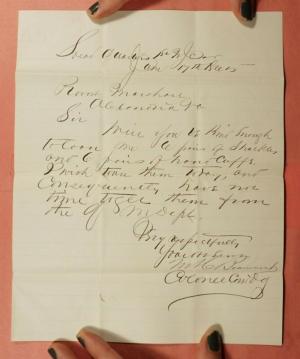 Head Quarters
Provost Marshall
Alexandria Va
Sir
Will you be Kind Enough
to loan me 6 pairs of Shackles
and 6 pairs of hand Cuffs.
I wish them and
Consequently have no
time to get them from
the Q M Dept.
Very respectfully
Colonel Comdg